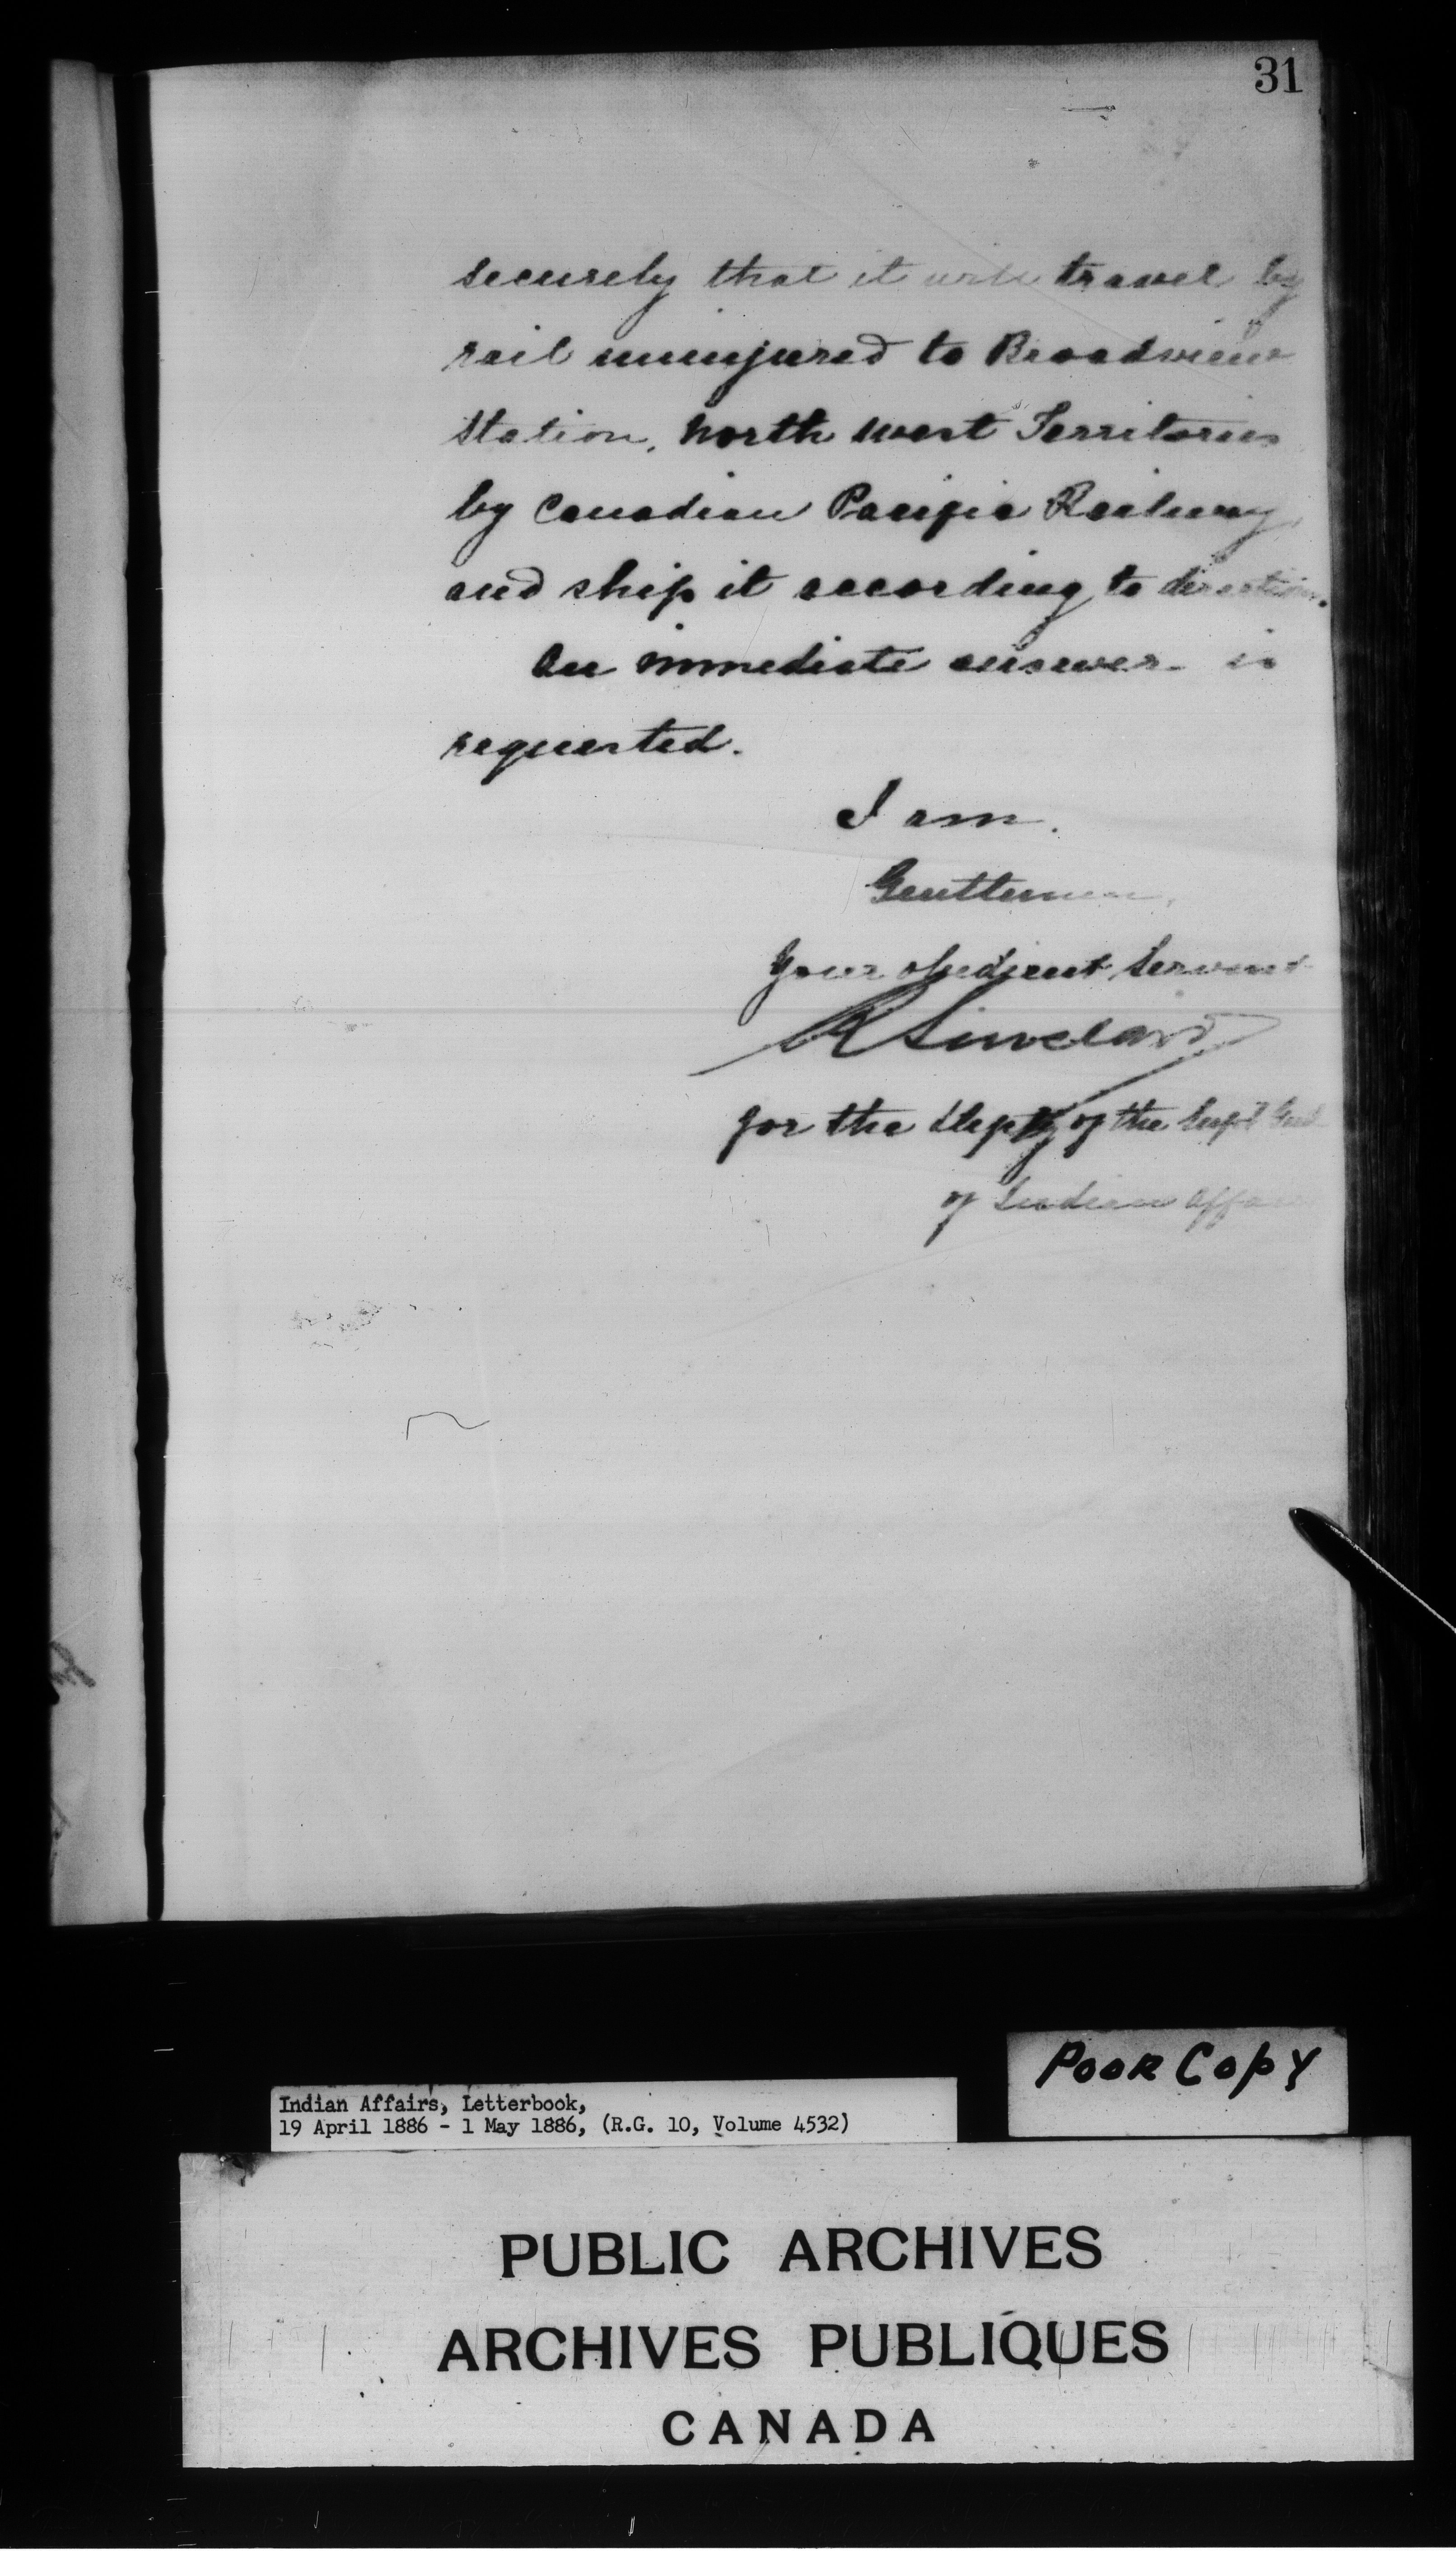 31
securely that it will travel by
rail uninjured to Broadview
Station, North West Territories
by Canadian Pacific Railway,
and ship it according to direction.
An immediate answer is
requested.
I am,
Gentlemen,
Your obedient Servant
R Sinclair
for the Depty of the Supt Genl
of Indian Affairs
Poor Copy
Indian Affairs, Letterbook,
19 April 1886 - 1 May 1886, (R.G. 10, Volume 4532)
PUBLIC ARCHIVES
ARCHIVES PUBLIQUES
CANADA